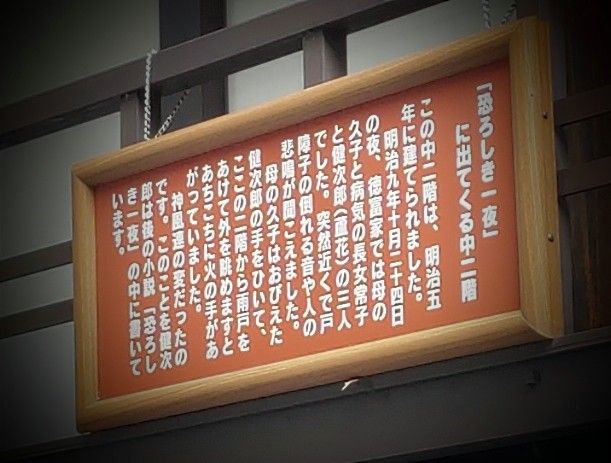 「恐ろしき一夜」
に出てくる中二階
この中二階は、明治五
年に建てられました。
明治九年十月二十四日
の夜、徳富家では母の
久子と病気の長女常子
と健次郎(蘆花)の三人
でした。突然近くで戸
障子の倒れる音や人の
悲鳴が聞こえました。
母の久子はおびえた
健次郎の手をひいて、
ここの二階から雨戸を
あけて外を眺めますと
あちこちに火の手があ
がっていました。
神風連の変だったの
です。このことを健次
郎は後の小説「恐ろし
き一夜」の中に書いて
います。